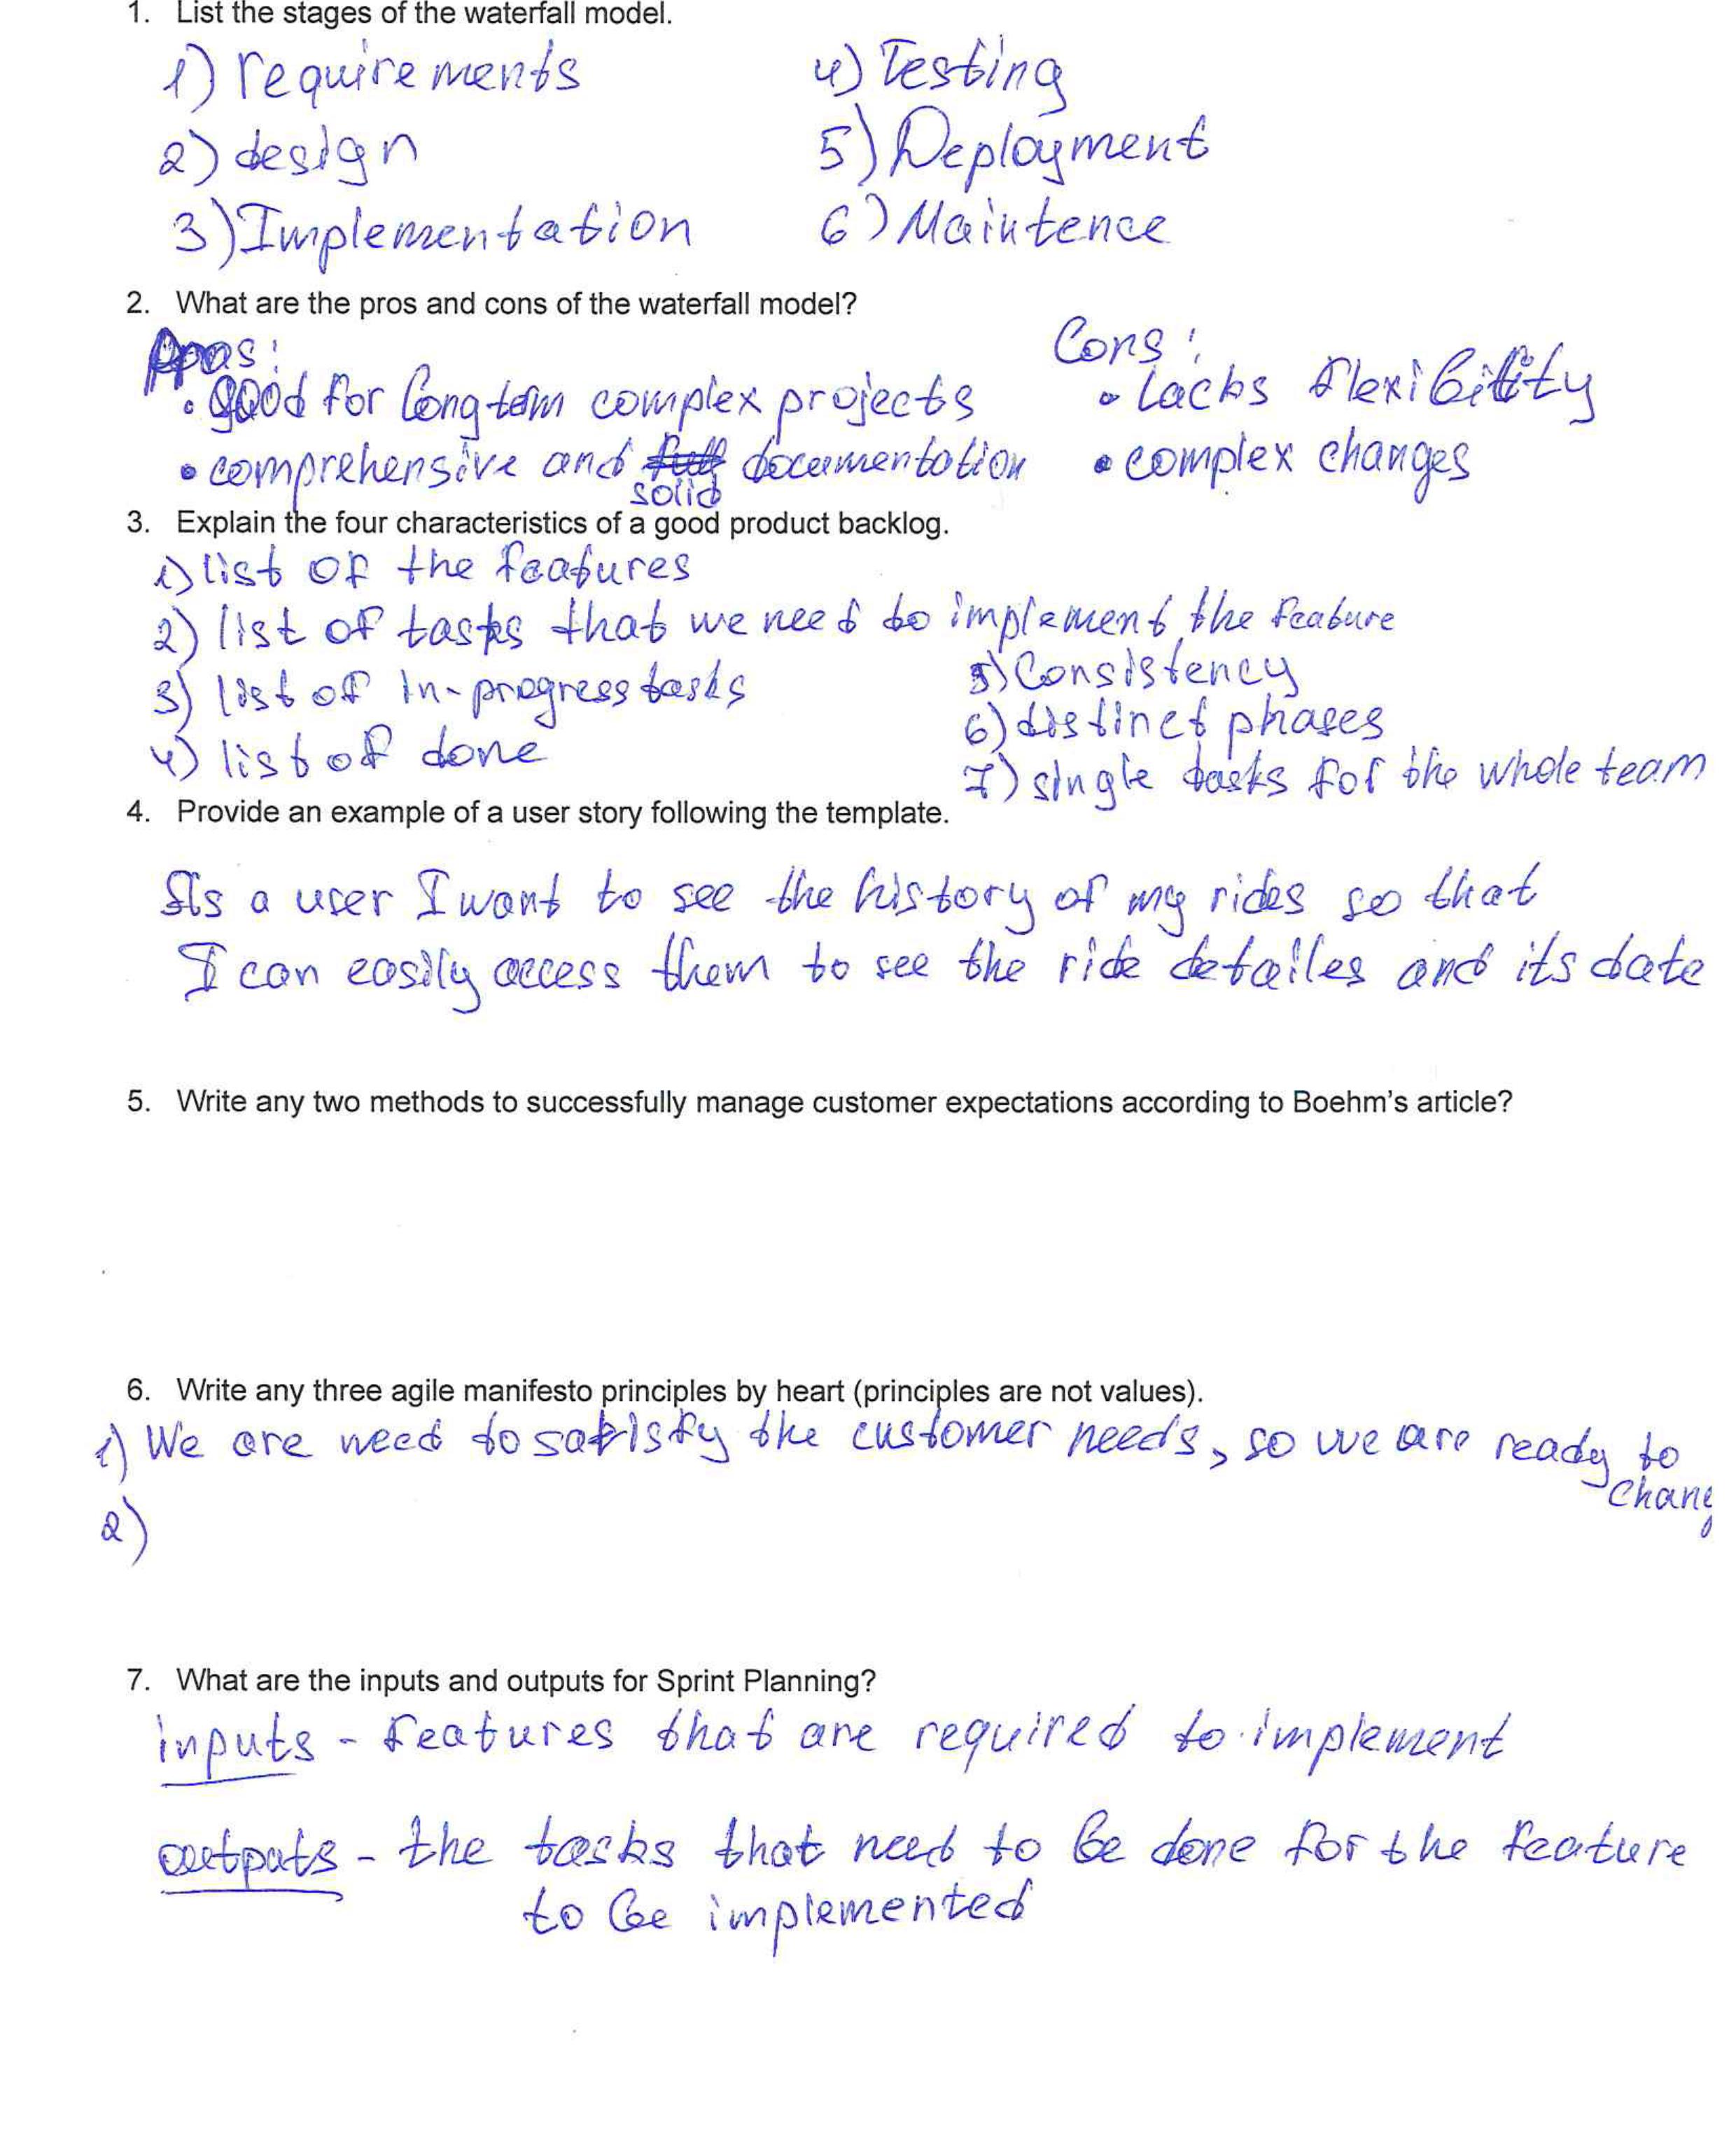 1. List the stages of the waterfall model.
1) requirements
2) design
3) Implementation
4) Testing
5) Deployment
6) Maintence
2. What are the pros and cons of the waterfall model?
Pros:
• good for long term complex projects
• comprehensive and solid documentation
Cons:
• lacks flexibility
• complex changes
3. Explain the four characteristics of a good product backlog.
1) list of the features
2) list of tasks that we need to implement the feature
3) list of in-progress tasks
4) list of done
5) Consistency
6) distinct phases
7) single tasks for the whole team
4. Provide an example of a user story following the template.
As a user I want to see the history of my rides so that
I can easily access them to see the ride detailes and its date
5. Write any two methods to successfully manage customer expectations according to Boehm's article?
6. Write any three agile manifesto principles by heart (principles are not values).
1) We are need to satisfy the customer needs, so we are ready to
chang
2)
7. What are the inputs and outputs for Sprint Planning?
inputs - features that are required to implement
outputs - the tasks that need to be done for the feature
to be implemented